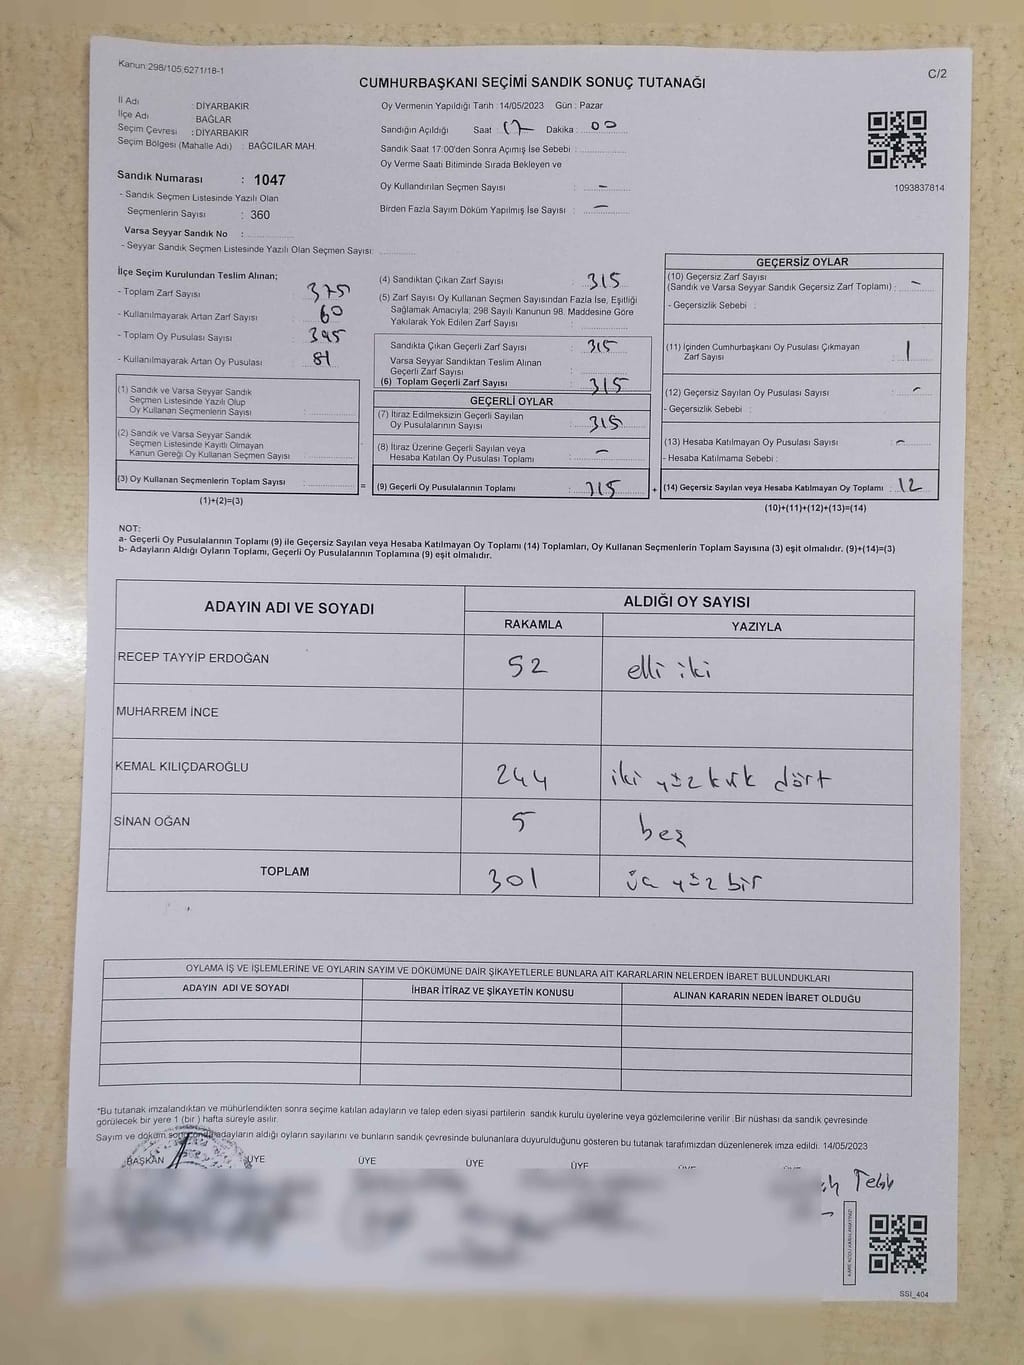 Kanun:298/105,6271/18-1
C/2
CUMHURBAŞKANI SEÇİMİ SANDIK SONUÇ TUTANAĞI
İl Adı : DİYARBAKIR
İlçe Adı : BAĞLAR
Seçim Çevresi : DİYARBAKIR
Seçim Bölgesi (Mahalle Adı) : BAĞCILAR MAH.
Sandık Numarası : 1047
- Sandık Seçmen Listesinde Yazılı Olan
Seçmenlerin Sayısı : 360
Varsa Seyyar Sandık No :
- Seyyar Sandık Seçmen Listesinde Yazılı Olan Seçmen Sayısı:
Oy Vermenin Yapıldığı Tarih : 14/05/2023 Gün : Pazar
Sandığın Açıldığı Saat 17 Dakika : 00
Sandık Saat 17:00'den Sonra Açımış İse Sebebi :
Oy Verme Saati Bitiminde Sırada Bekleyen ve
Oy Kullandırılan Seçmen Sayısı : –
Birden Fazla Sayım Döküm Yapılmış İse Sayısı : –
1093837814
İlçe Seçim Kurulundan Teslim Alınan;
- Toplam Zarf Sayısı : 375
- Kullanılmayarak Artan Zarf Sayısı : 60
- Toplam Oy Pusulası Sayısı : 395
- Kullanılmayarak Artan Oy Pusulası : 81
(1) Sandık ve Varsa Seyyar Sandık
Seçmen Listesinde Yazılı Olup
Oy Kullanan Seçmenlerin Sayısı :
(2) Sandık ve Varsa Seyyar Sandık
Seçmen Listesinde Kayıtlı Olmayan
Kanun Gereği Oy Kullanan Seçmen Sayısı :
(3) Oy Kullanan Seçmenlerin Toplam Sayısı : =
(1)+(2)=(3)
(4) Sandıktan Çıkan Zarf Sayısı : 315
(5) Zarf Sayısı Oy Kullanan Seçmen Sayısından Fazla İse, Eşitliği
Sağlamak Amacıyla; 298 Sayılı Kanunun 98. Maddesine Göre
Yakılarak Yok Edilen Zarf Sayısı :
Sandıkta Çıkan Geçerli Zarf Sayısı : 315
Varsa Seyyar Sandıktan Teslim Alınan
Geçerli Zarf Sayısı :
(6) Toplam Geçerli Zarf Sayısı : 315
GEÇERLİ OYLAR
(7) İtiraz Edilmeksizin Geçerli Sayılan
Oy Pusulalarının Sayısı : 315
(8) İtiraz Üzerine Geçerli Sayılan veya
Hesaba Katılan Oy Pusulası Toplamı : –
(9) Geçerli Oy Pusulalarının Toplamı : 315 +
GEÇERSİZ OYLAR
(10) Geçersiz Zarf Sayısı
(Sandık ve Varsa Seyyar Sandık Geçersiz Zarf Toplamı) : –
- Geçersizlik Sebebi :
(11) İçinden Cumhurbaşkanı Oy Pusulası Çıkmayan
Zarf Sayısı : 1
(12) Geçersiz Sayılan Oy Pusulası Sayısı : –
- Geçersizlik Sebebi :
(13) Hesaba Katılmayan Oy Pusulası Sayısı : –
- Hesaba Katılmama Sebebi :
(14) Geçersiz Sayılan veya Hesaba Katılmayan Oy Toplamı : 12
(10)+(11)+(12)+(13)=(14)
NOT:
a- Geçerli Oy Pusulalarının Toplamı (9) ile Geçersiz Sayılan veya Hesaba Katılmayan Oy Toplamı (14) Toplamları, Oy Kullanan Seçmenlerin Toplam Sayısına (3) eşit olmalıdır. (9)+(14)=(3)
b- Adayların Aldığı Oyların Toplamı, Geçerli Oy Pusulalarının Toplamına (9) eşit olmalıdır.
ADAYIN ADI VE SOYADI ALDIĞI OY SAYISI
RAKAMLA YAZIYLA
RECEP TAYYİP ERDOĞAN 52 elli iki
MUHARREM İNCE
KEMAL KILIÇDAROĞLU 244 iki yüz kırk dört
SİNAN OĞAN 5 beş
TOPLAM 301 üç yüz bir
OYLAMA İŞ VE İŞLEMLERİNE VE OYLARIN SAYIM VE DÖKÜMÜNE DAİR ŞİKAYETLERLE BUNLARA AİT KARARLARIN NELERDEN İBARET BULUNDUKLARI
ADAYIN ADI VE SOYADI İHBAR İTİRAZ VE ŞİKAYETİN KONUSU ALINAN KARARIN NEDEN İBARET OLDUĞU
*Bu tutanak imzalandıktan ve mühürlendikten sonra seçime katılan adayların ve talep eden siyasi partilerin sandık kurulu üyelerine veya gözlemcilerine verilir .Bir nüshası da sandık çevresinde
görülecek bir yere 1 (bir ) hafta süreyle asılır.
Sayım ve döküm sonunda adayların aldığı oyların sayılarını ve bunların sandık çevresinde bulunanlara duyurulduğunu gösteren bu tutanak tarafımızdan düzenlenerek imza edildi. 14/05/2023
BAŞKAN ÜYE ÜYE ÜYE ÜYE ÜYE ÜYE
SSI_404